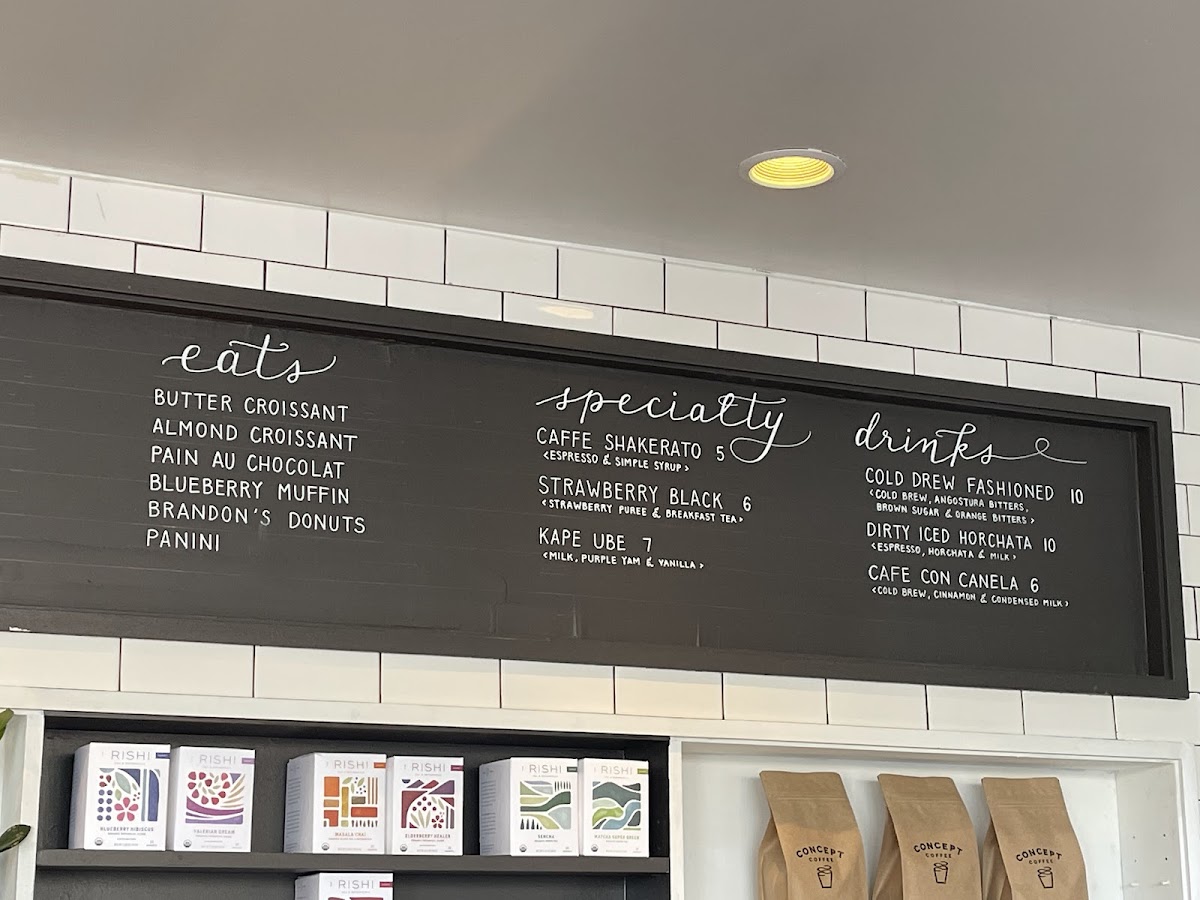 eats
BUTTER CROISSANT
ALMOND CROISSANT
PAIN AU CHOCOLAT
BLUEBERRY MUFFIN
BRANDON'S DONUTS
PANINI
specialty
CAFFE SHAKERATO 5
<ESPRESSO & SIMPLE SYRUP>
STRAWBERRY BLACK 6
<STRAWBERRY PUREE & BREAKFAST TEA>
KAPE UBE 7
<MILK, PURPLE YAM & VANILLA>
drinks
COLD DREW FASHIONED 10
<COLD BREW, ANGOSTURA BITTERS,
BROWN SUGAR & ORANGE BITTERS>
DIRTY ICED HORCHATA 10
<ESPRESSO, HORCHATA & MILK>
CAFE CON CANELA 6
<COLD BREW, CINNAMON & CONDENSED MILK>
RISHI
BLUEBERRY HIBISCUS
RISHI
VALERIAN DREAM
RISHI
MASALA CHAI
RISHI
ELDERBERRY HEALER
RISHI
SENCHA
RISHI
MATCHA SUPER GREEN
RISHI
CONCEPT
COFFEE
CONCEPT
COFFEE
CONCEPT
COFFEE